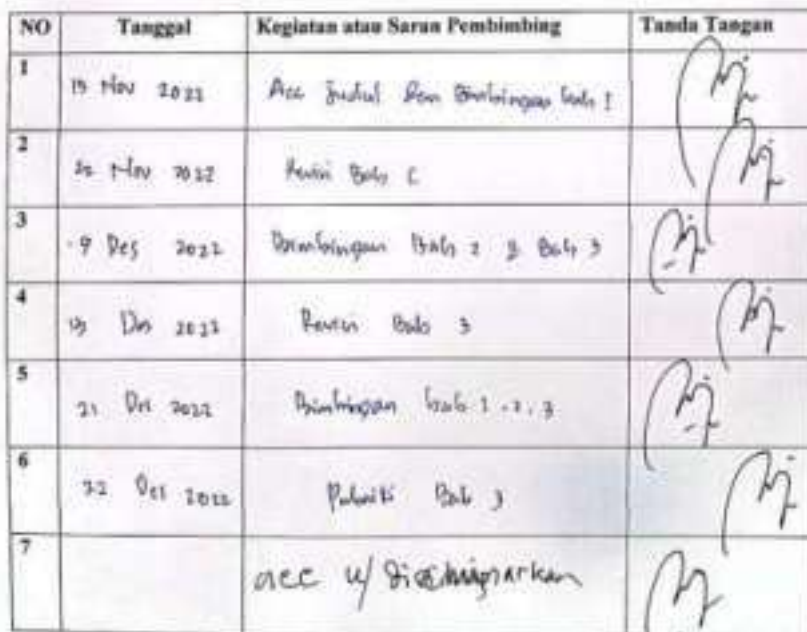 NO Tanggal Kegiatan atau Saran Pembimbing Tanda Tangan
1 Nov 2022 Acc Judul dan Bimbingan bab 1
2 22 Nov 2022 Revisi Bab
3 9 Des 2022 Bimbingan Bab 2 & Bab 3
4 Des 2022 Revisi Bab 3
5 21 Des 2022 Bimbingan bab 1.2.3
6 22 Des 2022 Bab 3
7 acc u/